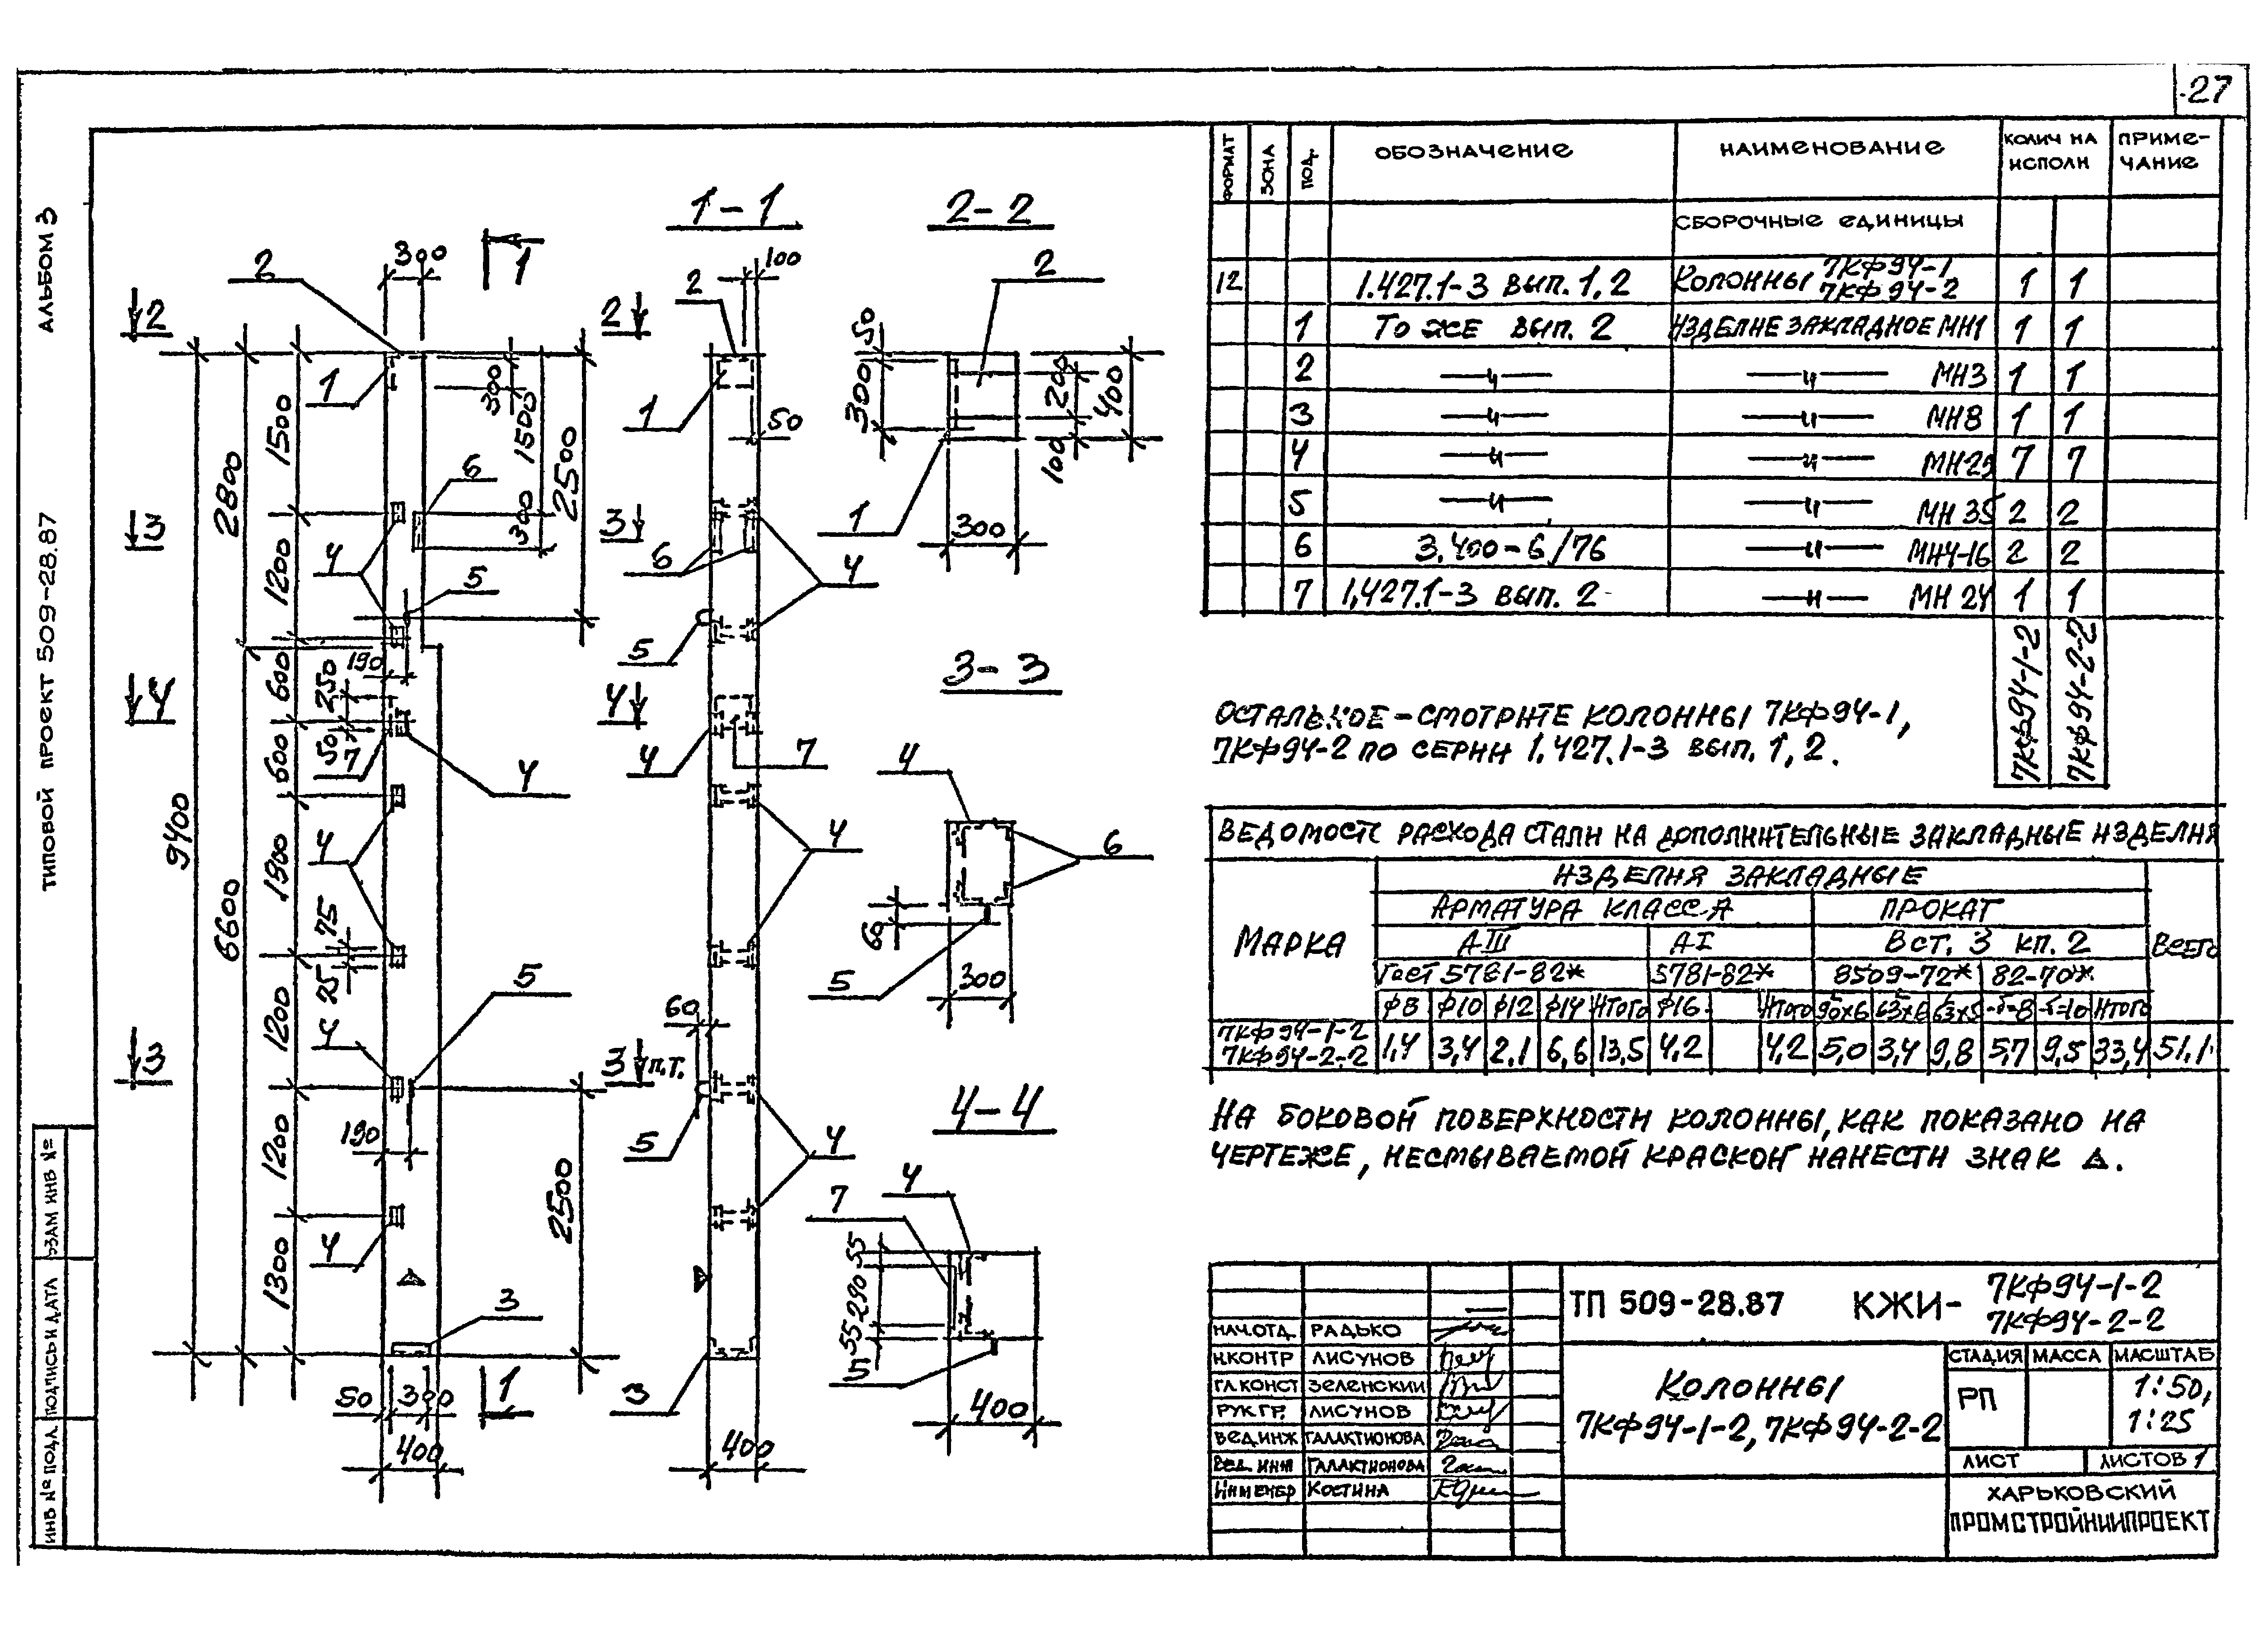 27
АЛЬБОМ 3
ТИПОВОЙ ПРОЕКТ 509-28.87
ВЗАМ ИНВ №
ПОДПИСЬ И ДАТА
ИНВ № ПОДЛ
2
300
1
2
1
300
1500
2500
1500
2800
3
6
300
4
1200
5
190
600
250
4
50
7
600
4
9400
4
1800
6600
75
25
5
1200
4
3
190
1200
2500
4
1300
3
50
300
1
400
1-1
100
2
2
1
50
3
6
4
5
4
4
7
4
60
3
п.т.
5
4
3
400
2-2
2
50
300
200
400
100
1
300
3-3
4
6
60
5
300
4-4
4
7
55
290
55
5
400
ФОРМАТ
ЗОНА
ПОД.
ОБОЗНАЧЕНИЕ
НАИМЕНОВАНИЕ
КОЛИЧ НА ИСПОЛН
ПРИМЕ-
ЧАНИЕ
СБОРОЧНЫЕ ЕДИНИЦЫ
12 1.427.1-3 вып. 1,2 КОЛОННЫ 7КФ94-1 7КФ94-2 1 1
1 ТО ЖЕ вып. 2 ИЗДЕЛИЕ ЗАКЛАДНОЕ МН1 1 1
2 —ч— —ч— МН3 1 1
3 —ч— —ч— МН8 1 1
4 —ч— —ч— МН29 7 7
5 —ч— —ч— МН 35 2 2
6 3.400-6/76 —ч— МН4-16 2 2
7 1.427.1-3 вып. 2 —н— МН 24 1 1
7КФ94-1-2
7КФ94-2-2
ОСТАЛЬНОЕ - СМОТРИТЕ КОЛОННЫ 7КФ94-1,
7КФ94-2 ПО СЕРИИ 1.427.1-3 вып. 1,2.
ВЕДОМОСТЬ РАСХОДА СТАЛИ НА ДОПОЛНИТЕЛЬНЫЕ ЗАКЛАДНЫЕ ИЗДЕЛИЯ
МАРКА
ИЗДЕЛИЯ ЗАКЛАДНЫЕ
ВСЕГО
АРМАТУРА КЛАСС-А ПРОКАТ
А-III А-I В ст. 3 кп. 2
ГОСТ 5781-82* 5781-82* 8509-72* 82-70*
ф8 ф10 ф12 ф14 ИТОГО ф16 ИТОГО 90×6 63×6 63×5 -δ=8 -δ=10 ИТОГО
7КФ94-1-2
7КФ94-2-2
1,4 3,4 2,1 6,6 13,5 4,2 4,2 5,0 3,4 9,8 5,7 9,5 33,4 51,1
НА БОКОВОЙ ПОВЕРХНОСТИ КОЛОННЫ, КАК ПОКАЗАНО НА
ЧЕРТЕЖЕ, НЕСМЫВАЕМОЙ КРАСКОЙ НАНЕСТИ ЗНАК Δ.
ТП 509-28.87 КЖИ- 7КФ94-1-2
7КФ94-2-2
НАЧ.ОТД. РАДЬКО
Н.КОНТР ЛИСУНОВ
ГЛ.КОНСТ ЗЕЛЕНСКИЙ
РУК.ГР. ЛИСУНОВ
ВЕД.ИНЖ ГАЛАКТИОНОВА
ВЕД. ИНЖ ГАЛАКТИОНОВА
ИНЖЕНЕР КОСТИНА
КОЛОННЫ
7КФ94-1-2, 7КФ94-2-2
СТАДИЯ МАССА МАСШТАБ
РП 1:50,
1:25
ЛИСТ ЛИСТОВ 1
ХАРЬКОВСКИЙ
ПРОМСТРОЙНИИПРОЕКТ